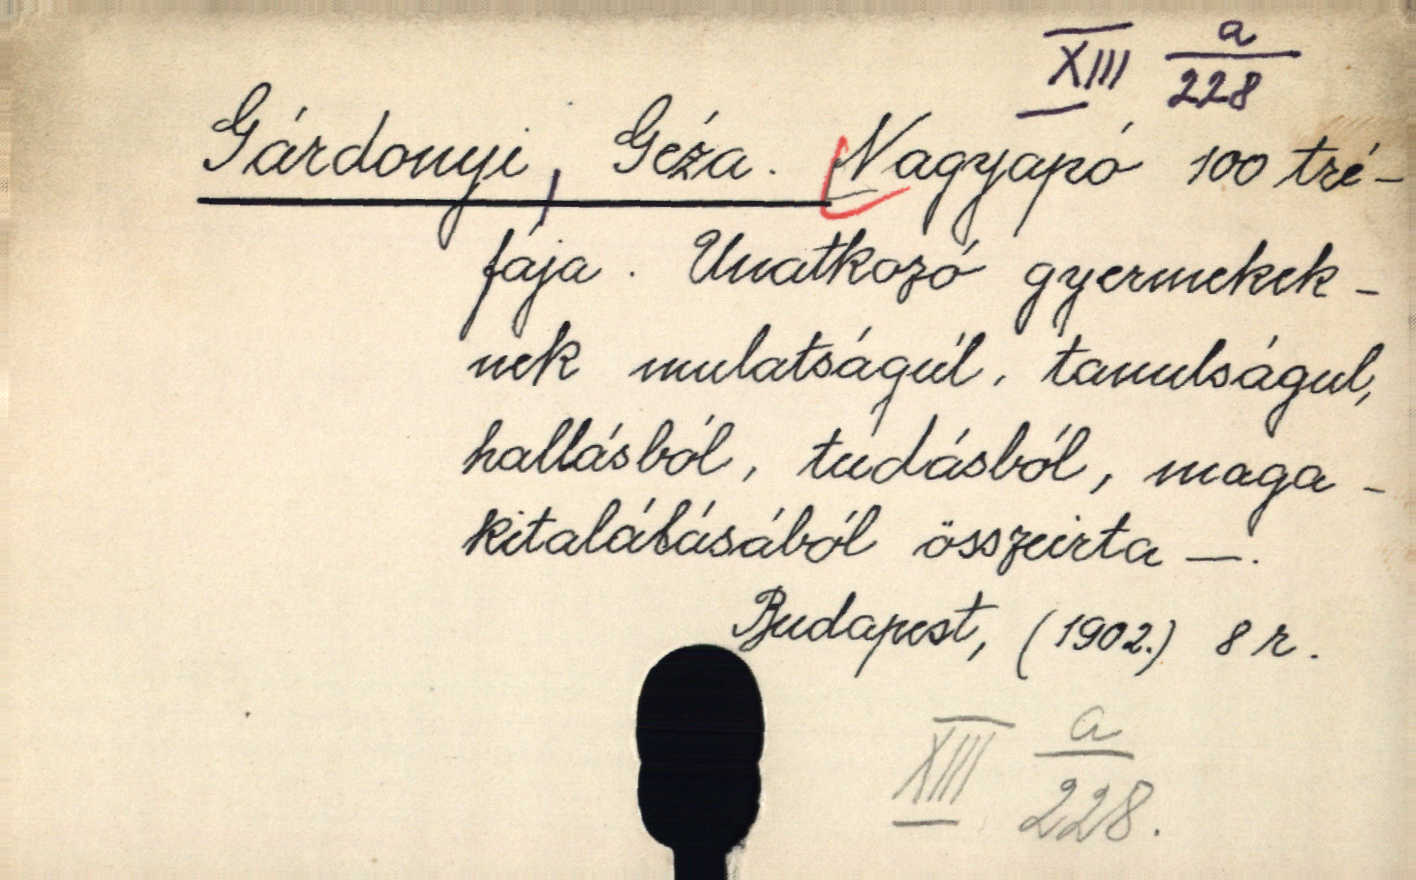 XIII a/228
Gárdonyi, Géza. Nagyapó 100 tré-
fája. Unatkozó gyermekek-
nek mulatságúl, tanulságul,
hallásból, tudásból, maga-
kitalálásából összeirta —.
Budapest, (1902.) 8 r.
XIII a/228.